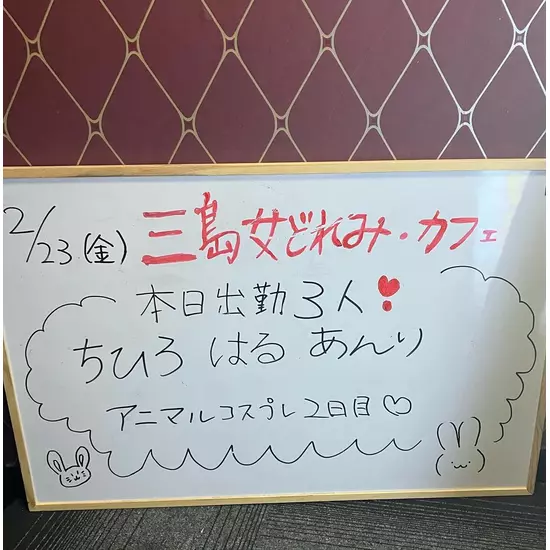 2/23(金) 三島女どれみ・カフェ
本日出勤3人❣
ちひろ はる あんり
アニマルコスプレ2日目♡